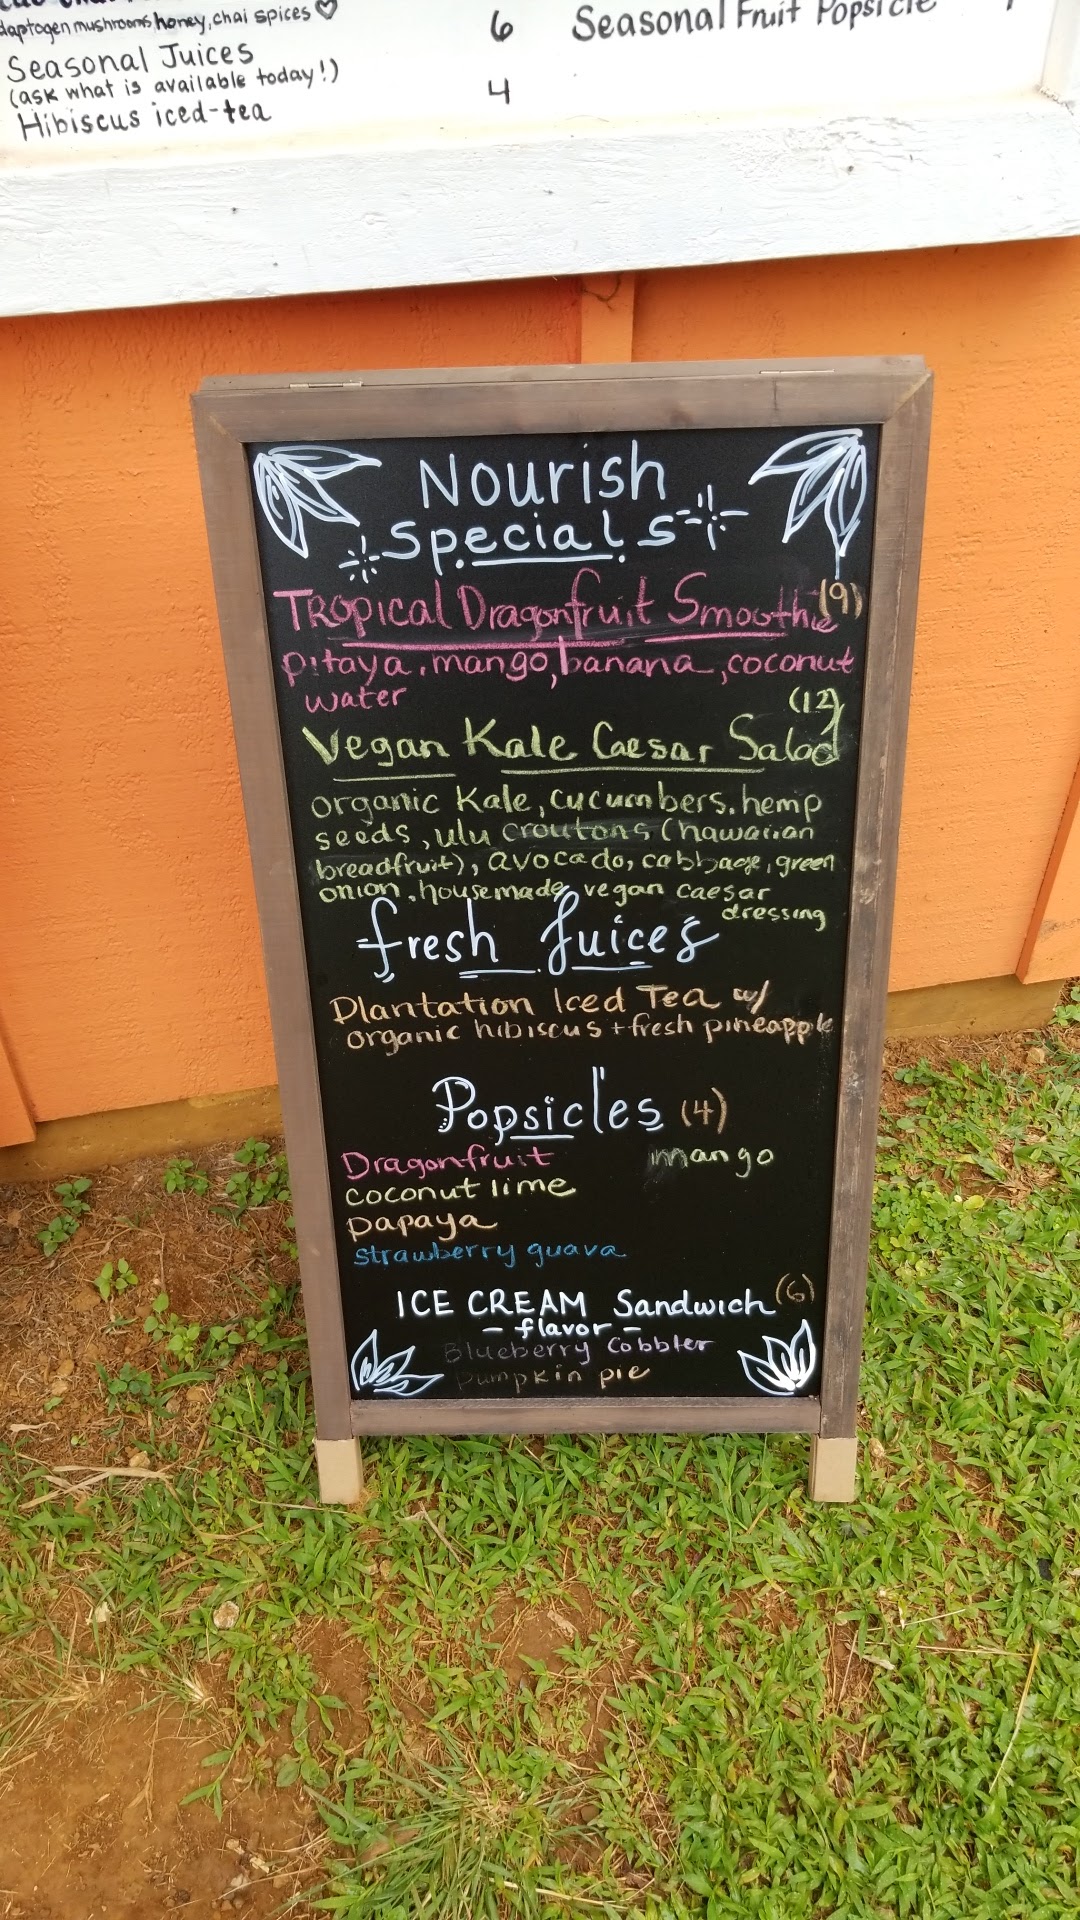 daptogen mushrooms honey, chai spices ♡
Seasonal Juices 6
(ask what is available today!)
Hibiscus iced-tea 4
Seasonal Fruit Popsicle
Nourish
Specials
Tropical Dragonfruit Smoothie (9)
pitaya, mango, banana, coconut
water
(12)
Vegan Kale Caesar Salad
organic Kale, cucumbers, hemp
seeds, ulu croutons (hawaiian
breadfruit), avocado, cabbage, green
onion, housemade vegan caesar
dressing
fresh Juices
Plantation Iced Tea w/
organic hibiscus + fresh pineapple
Popsicles (4)
Dragonfruit mango
coconut lime
papaya
strawberry guava
ICE CREAM Sandwich (6)
- flavor -
Blueberry Cobbler
Pumpkin pie